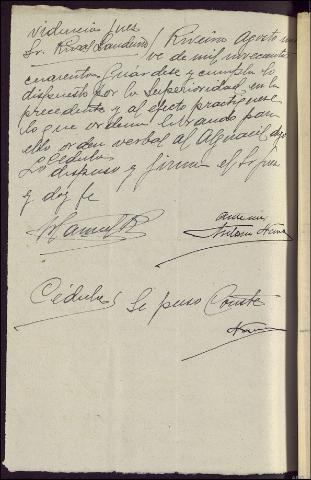 videncia Juez
Sr. Rivas Landeiro / Riveira Agosto nue
ve de mil novecientos
cuarenta. Guárdese y cumpla lo
dispuesto por la Superioridad en la
precedente y al efecto practíquese
lo que ordena librando para
ello orden verbal al Alguacil
Lo dispuso y firma el Sr Juez
y doy fe
Manuel R
ante mi
Antonio
Cédula / Se puso Conste